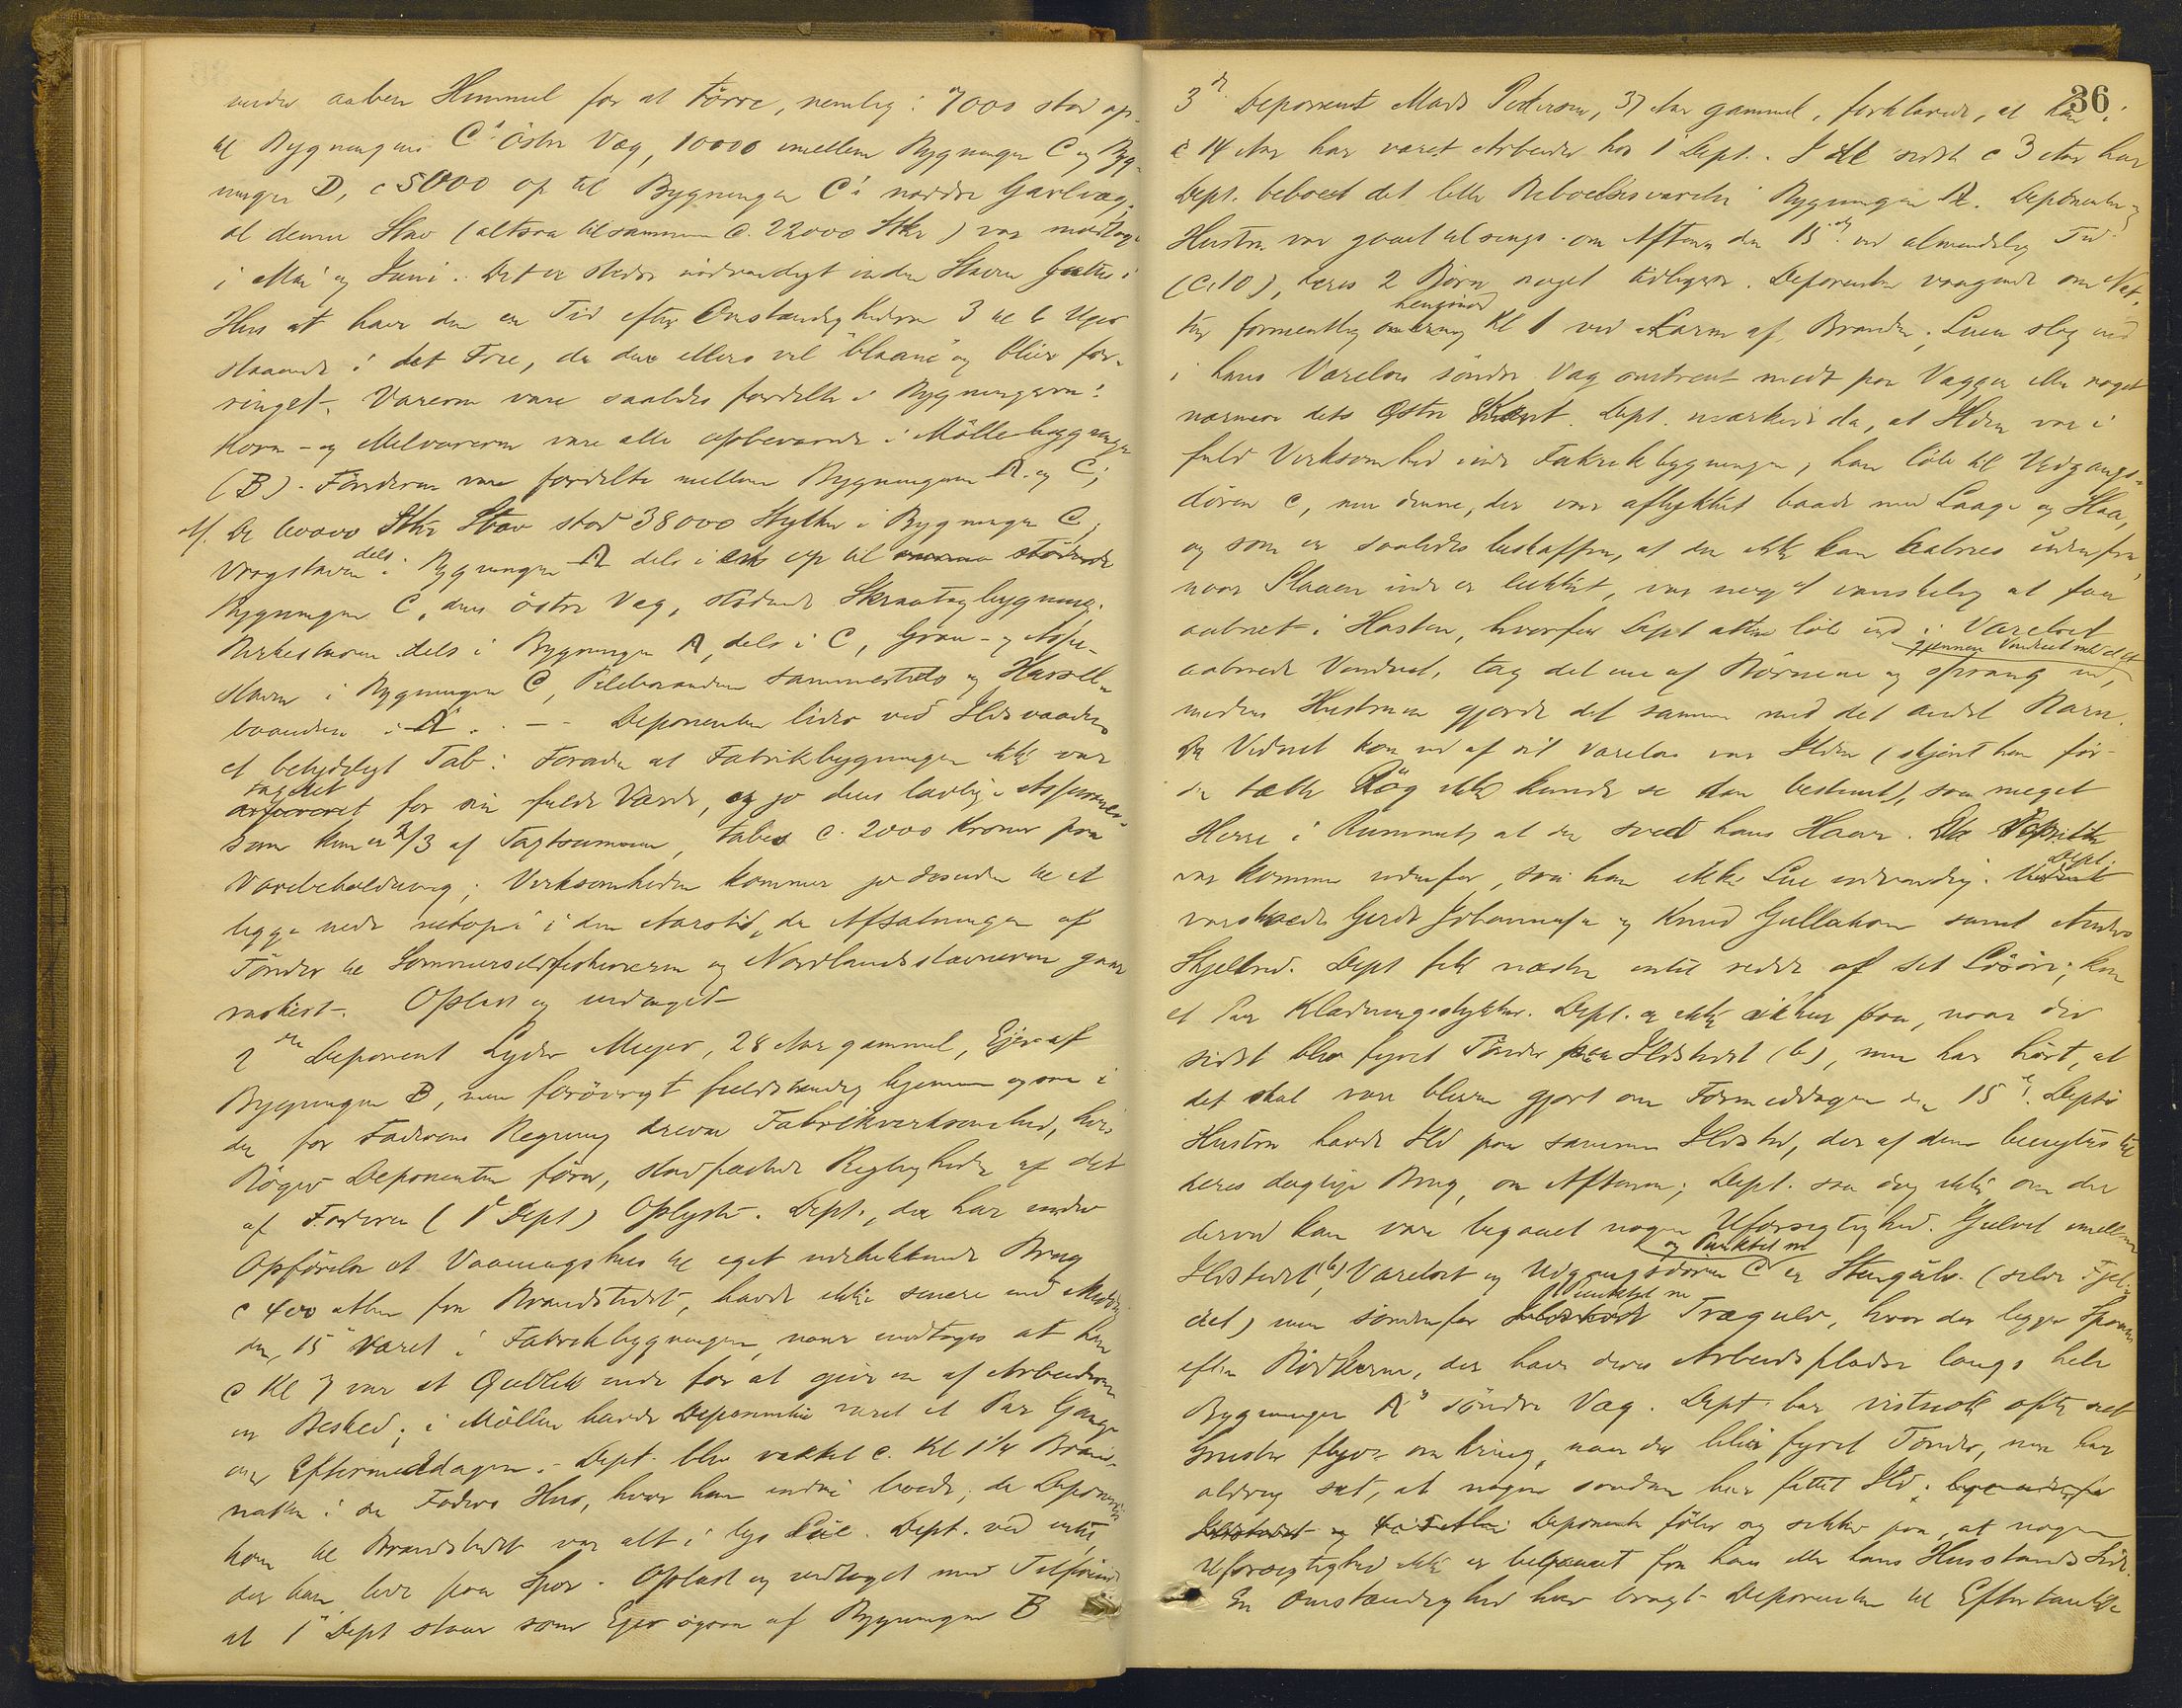 under aaben Himmel for at tørre, nemlig: 7000 stod op
til Bygningens C's østre Væg, 10000 imellem Bygningen C og Byg-
ningen D, c 5000 op til Bygningen C's nordre Gavlvæg;
al denne Stav (altsaa tilsammen c. 22000 Stkr) var modtaget
i Mai og Juni. Det er nødvendigt inden Staven sættes i
Hus at have den en Tid efter Omstændighederne 3 til 6 Uger
staaende i det Frie, da den ellers vil "blaane" og blive for-
ringet. Varerne vare saaledes fordelte i Bygningerne:
Korn- og Melvarerne vare alle opbevarede i Møllebygningen
(B). Tønderne vare fordelte mellem Bygningerne A. og C;
Af de 60000 Stkr Stav stod 38000 Stykker i Bygningen C,
Vragstaven dels i Bygningen A dels i op til stødende
Bygningen C, dens østre Væg, stødende Skraatagbygning.
Birkestaven dels i Bygningen A, dels i C, Gran- og Aspe-
staven i Bygningen C, Pilebaandene sammesteds og Hassel-
baandene i A. — Deponenten lider ved Ildsvaaden
et betydeligt Tab: Foruden at Fabrikbygningen ikke var
taxeret for sin fulde Værdi, og jo dens lovlige Assurance-
Sum kun er 2/3 af Taxtsummen, tabes c. 2000 Kroner paa
Varebeholdning; Virksomheden kommer jo desuden til at
ligge nede netop i den Aarstid, da Afsætningen af
Tønder til Sommersildfiskerierne og Nordlandsstævnerne gaar
raskest. Oplæst og vedtaget
2den Deponent Lyder Meyer, 28 Aar gammel, Ejer af
Bygningen B, men forøvrigt fuldstændig hjemme ogsaa i
den for Faderens Regning drevne Fabrikvirksomhed, hvis
Bøger Deponenten fører, stadfæstede Rigtigheden af det
af Faderen (1ste Dept) Oplyste. Dept., der har under
Opførelse et Vaaningshus til eget udelukkende Brug
c 400 Alen fra Brandstedet, havde ikke senere end Middag
den 15de været i Fabrikbygningen, naar undtages at han
c Kl 7 var et Øieblik inde for at give en af Arbeiderne
en Besked; i Møllen havde Deponenten været et Par Gange
om Eftermiddagen. Dept. blev vækket c. Kl 1¼ Brand-
natten i sin Faders Hus, hvor han endnu boede; da Deponenten
kom til Brandstedet var alt i lys Lue. Dept. ved intet,
der kan lede paa Spor. Oplæst og vedtaget med Tilføiende
at 1ste Dept staar som Ejer ogsaa af Bygningen B
36
3die Deponent Mads Pedersen, 37 Aar gammel, forklarede, at han i
c 14 Aar har været Arbeider hos 1 Dept. I de sidste c 3 Aar har
Dept. beboet det lille Beboelsesværelse i Bygningen A. Deponenten og
Hustru var gaaet tilsengs om Aftenen den 15de ved almindelig Tid
(c. 10), deres 2 Børn noget tidligere. Deponenten vaagnede om Nat-
henimod
ten formentlig omkring Kl 1 ved Larm af Branden; Luen slog ind
i hans Værelses søndre Væg omtrent midt paa Væggen eller noget
nærmere dets østre Kant. Dept. mærkede da, at Ilden var i
fuld Virksomhed inde Fabrikbygningen, han løb til Udgangs-
døren c, men denne, der var aflukket baade med Laage og Slaa,
og som er saaledes beskaffen, at den ikke kan aabnes udenfra,
naar Slaaen inde er lukket, var noget vanskelig at faa
aabnet i Hasten, hvorfor Dept atter løb ind i Værelset
gjennem Vinduet med det
aabnede Vinduet, tog det ene af Børnene og sprang ud,
medens Hustruen gjorde det samme med det andet Barn.
Da Vidnet kom ud af sit Værelse var Ilden (skjønt han for
den tætte Røg ikke kunde se den bestemt), saa meget
Herre i Rummet, at den sved hans Haar. Da
Dept.
var kommen udenfor, saa han ikke Lue udvendig.
varskoede Gerdt Johannesen og Knud Gullaksen samt Anders
Skjelbred. Dept fik næsten intet reddet af sit Løsøre; kun
et Par Klædningsstykker. Dept. er ikke sikker paa, naar der
sidst blev fyret Tønder paa Ildstedet (b), men har hørt, at
det skal være bleven gjort om Formiddagen den 15de. Depts
Hustru havde Ild paa samme Ildsted, der af dem benyttes til
deres daglige Brug, om Aftenen; Dept. saa dog ikke, om der
derved kan være begaaet nogen Uforsigtighed. Gulvet imellem
og Punktet m
Ildstedet (b), Værelset og Udgangsdøren C er Stengulv. (selve Fjel-
Punktet m
det) men søndenfor Trægulv, hvor der ligger Spaaner
efter Bødkerne, der have deres Arbeidspladse langs hele
Bygningen A's søndre Væg. Dept. har vistnok ofte set
Gnister flyve omkring, naar der bliver fyret Tønder, men har
aldrig set, at nogen saadan har fattet Ild.
Deponenten føler sig sikker paa, at nogen
Uforsigtighed ikke er begaaet fra hans eller hans Husstands Side.
En Omstændighed har bragt Deponenten til Eftertanke